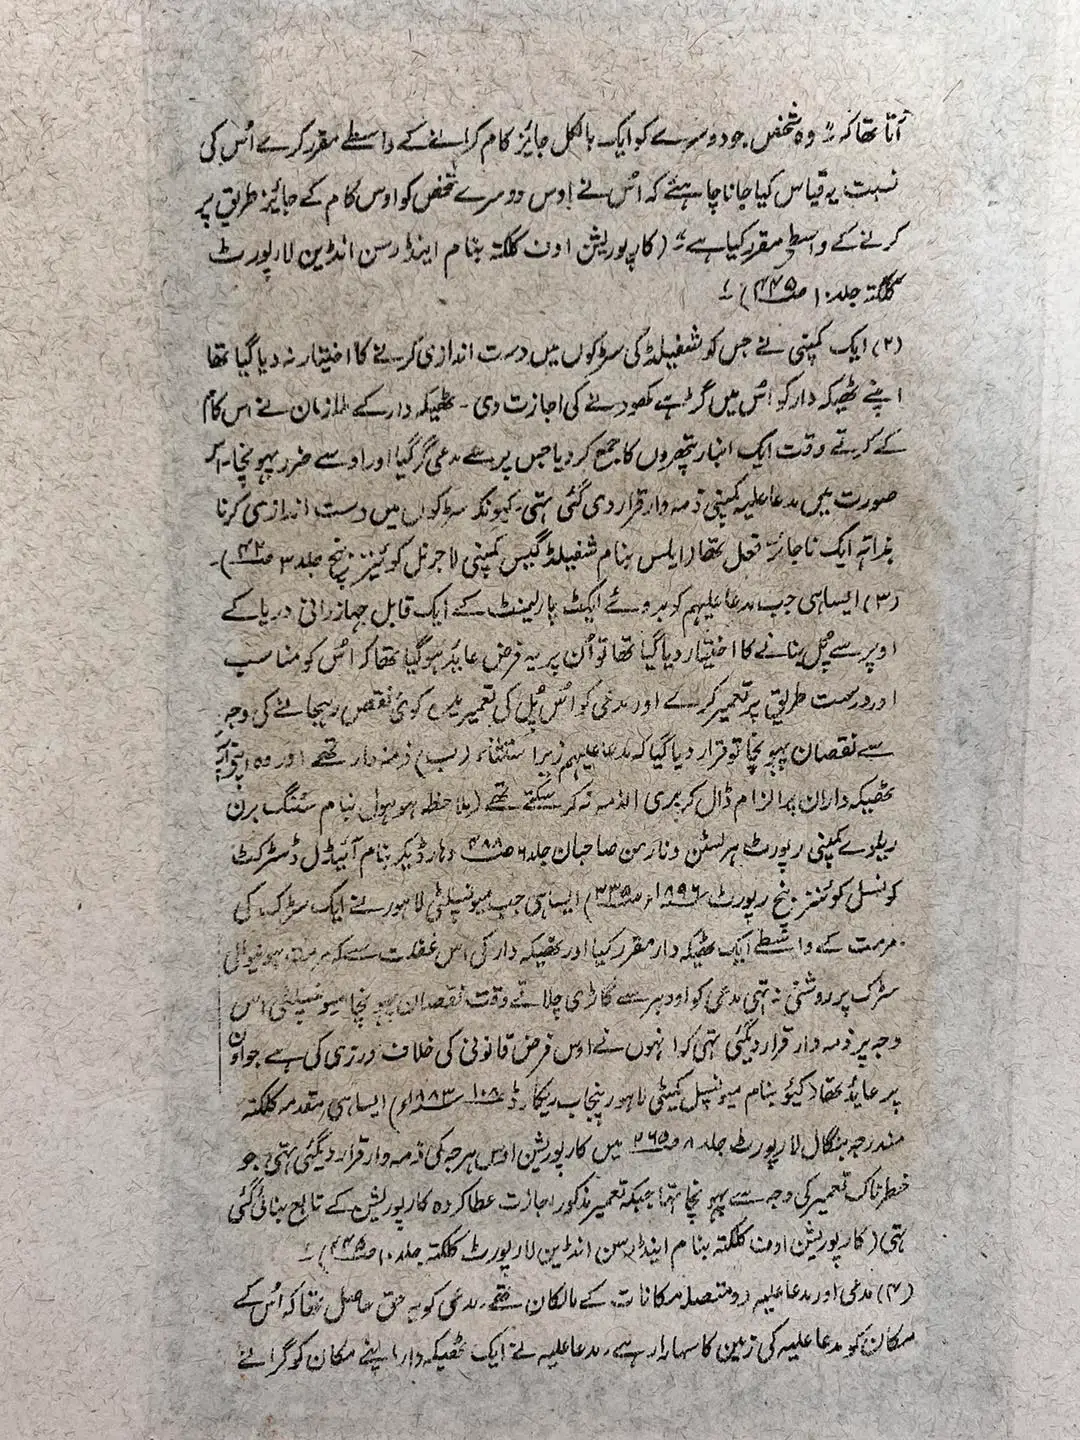 آتا تھا کہ " وہ شخص جو دوسرے کو ایک بالکل جایز کام کرانے کے واسطے مقرر کرے اُس کی
نسبت یہ قیاس کیا جانا چاہئے کہ اُس نے اوس دوسرے شخص کو اوس کام کے جایز طریق پر
کرنے کے واسطے مقرر کیا ہے " (کارپوریشن اوف کلکتہ بنام اینڈرسن انڈین لا رپورٹ
کلکتہ جلد ۱۰ ص۴۴۵)
(۲) ایک کمپنی نے جس کو شفیلڈ کی سڑکوں میں دست اندازی کرنے کا اختیار نہ دیا گیا تھا
اپنے ٹھیکہ دار کو اُس میں گڑہے کھودنے کی اجازت دی ۔ ٹھیکہ دار کے ملازمان نے اس کام
کے کرتے وقت ایک انبار پتھروں کا جمع کر دیا جس پر سے مدعی گر گیا اور اوسے ضرر پہونچا۔ اس
صورت میں مدعا علیہ کمپنی ذمہ وار قرار دی گئی تہی۔ کیونکہ سڑکوں میں دست اندازی کرنا
بذاتہ ایک ناجائز فعل تھا (ایلس بنام شفیلڈ گیس کمپنی لا جرنل کوئینز بنچ جلد ۳ ص۴۲)۔
(۳) ایسا ہی جب مدعا علیہم کو بروئے ایکٹ پارلیمنٹ کے ایک قابل جہاز رانی دریا کے
اوپر سے پُل بنانے کا اختیار دیا گیا تھا تو اُن پر یہ فرض عاید ہو گیا تھا کہ اُس کو مناسب
اور درست طریق پر تعمیر کرے اور مدعی کو اُس پُل کی تعمیر میں کوئی نقص رہجانے کی وجہ
سے نقصان پہونچا تو قرار دیا گیا کہ مدعا علیہم زیر استثناء (ب) ذمہ دار تھے اور وہ اپنے
ٹھیکہ داران پر الزام ڈال کر بری الذمہ نہ کر سکتے تھے (ملاحظہ ہو ہول بنام سٹنگ برن
ریلوے کمپنی رپورٹ ہرلسٹن و نارمن صاحبان جلد ۶ ص۴۸۸ وہارڈیکر بنام آئیڈل ڈسٹرکٹ
کونسل کوئنز بنچ رپورٹ ۱۸۹۶ء ص۳۳۵) ایسا ہی جب میونسپلٹی لاہور نے ایک سڑک کی
مرمت کے واسطے ایک ٹھیکہ دار مقرر کیا اور ٹھیکہ دار کی اس غفلت سے کہ مرمت ہونیوالی
سڑک پر روشنی نہ تہی مدعی کو اودہر سے گاڑی چلاتے وقت نقصان پہونچا میونسپلٹی اس
وجہ پر ذمہ دار قرار دیگئی تہی کہ انہوں نے اوس فرض قانونی کی خلاف ورزی کی ہے جو اون
پر عاید تھا (کیئو بنام میونسپل کمیٹی لاہور پنجاب ریکارڈ ۱۰۸ ۱۹۸۳ء) ایسا ہی مقدمہ کلکتہ
مندرجہ بنگال لا رپورٹ جلد ۸ ص۲۶۵ میں کارپوریشن اوس ہرجہ کی ذمہ وار قرار دیگئی تہی جو
خطرناک تعمیر کی وجہ سے پہونچا تہا جبکہ تعمیر مذکور اجازت عطا کردہ کارپوریشن کے تابع بنائی گئی
تہی (کارپوریشن اوف کلکتہ بنام اینڈرسن انڈین لا رپورٹ کلکتہ جلد ۱۰ ص۴۴۵)۔
(۴) مدعی اور مدعا علیہ دو متصلہ مکانات کے مالکان تھے۔ مدعی کو یہ حق حاصل تھا کہ اُس کے
مکان کو مدعا علیہ کی زمین کا سہارا رہے۔ مدعا علیہ نے ایک ٹھیکہ دار اپنے مکان کو گرانے